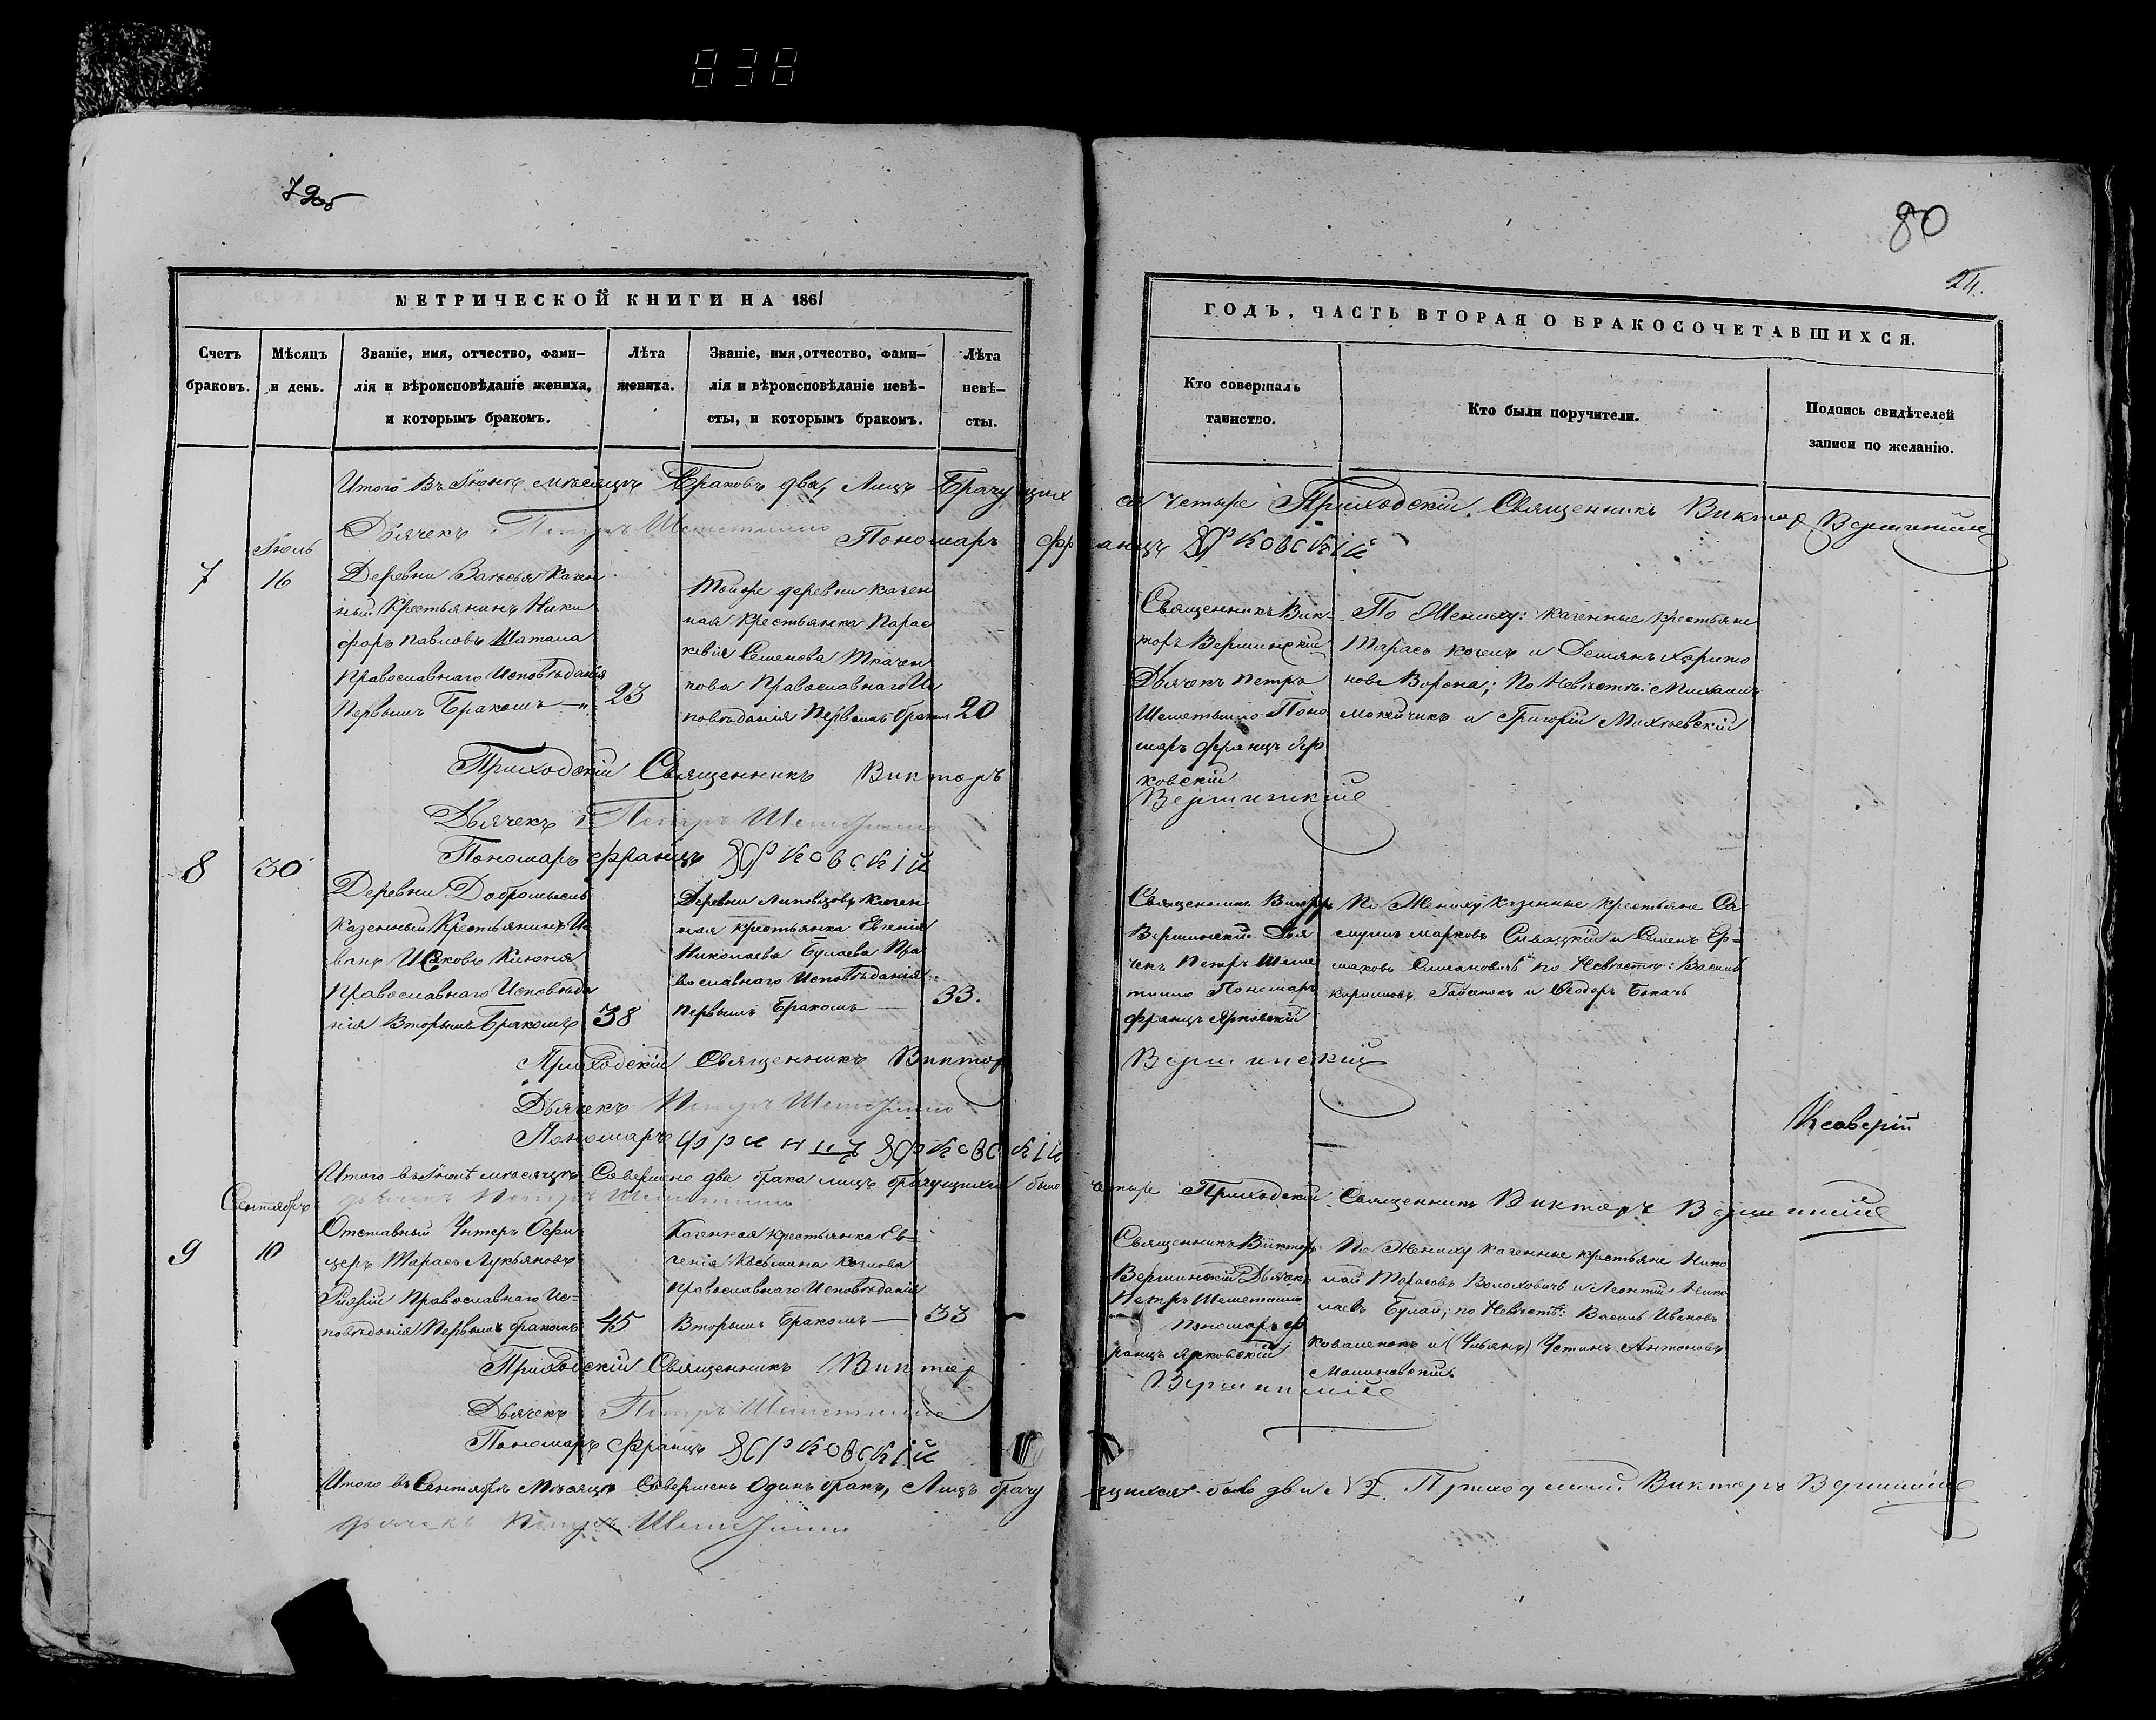 838
79об
80
24.
МЕТРИЧЕСКОЙ КНИГИ НА 1861
ГОДЪ, ЧАСТЬ ВТОРАЯ О БРАКОСОЧЕТАВШИХСЯ.
Счетъ браковъ.
Мѣсяцъ и день.
Званіе, имя, отчество, фами-
лія и вѣроисповѣданіе жениха,
и которымъ бракомъ.
Лѣта жениха.
Званіе, имя, отчество, фами-
лія и вѣроисповѣданіе невѣ-
сты, и которымъ бракомъ.
Лѣта невѣ-
сты.
Кто совершалъ
таинство.
Кто были поручители.
Подпись свидѣтелей
записи по желанію.
Итого Въ Іюнѣ мѣсяцѣ Браковъ два, Лицъ Брачущих
ся четыре Приходскій Священникъ Викторъ Вершинскій
Дьячекъ Петръ Пономарь Францъ Ярковскій
7
Іюль
16
Деревни Казен
ный Крестьянинъ Ники
форъ Павловъ Шатила
Православнаго Исповѣданія
Первымъ Бракомъ
23
Той же деревни казен
ная Крестьянка Парас
кевія Семенова Ткачен
кова Православнаго Ис
повѣданія Первымъ бракомъ
20
Священникъ Вик-
торъ Вершинскій
Дьячекъ Петръ
Поно
марь Францъ Яр
ковскій
По Жениху: казенные крестьяне
Тарасъ и Демянъ Харито
новъ Ворона; По Невѣстѣ: Михаилъ
и Григорій
Приходскій Священникъ Викторъ
Вершинскій
Дьячекъ Петръ
Пономарь Францъ Ярковскій
8
30
Деревни
Казенный Крестьянинъ И
ванъ
Православнаго Исповѣда
нія Вторымъ Бракомъ
38
Деревни казен
ная крестьянка Евгенія
Николаева Булаева Пра
вославнаго Исповѣданія
первымъ Бракомъ
33.
Священникъ Викторъ
Вершинскій Дья
чекъ Петръ
Пономарь
Францъ Ярковскій
По Жениху Казенные Крестьяне Са
муилъ Марковъ и Семенъ Ер-
маковъ по Невѣстѣ: Василь
и Ѳеодоръ
Приходскій Священникъ Викторъ
Вершинскій
Дьячекъ Петръ
Пономарь Францъ Ярковскій
Итого въ Іюлѣ мѣсяцѣ Совершено два брака лицъ брачущихся было
четыре Приходскій Священникъ Викторъ Вершинскій
дьячекъ Петръ
Сентябрь
9
10
Отставный Унтеръ Офи-
церъ Тарасъ Лукьяновъ
Православнаго Ис-
повѣданія Первымъ бракомъ
45
Казенная крестьянка Ев-
генія Козлова
Православнаго Исповѣданія
Вторымъ Бракомъ
33
Священникъ Викторъ
Вершинскій Дьячекъ
Петръ
Пономарь Ф
ранцъ Ярковскій
По Жениху казенные крестьяне Нико
лай Тарасовъ и Леонтій Нико
лаевъ Булай; по Невѣстѣ: Василь Ивановъ
Коваленокъ и Устинъ Антоновъ
Малиновскій
Приходскій Священникъ Викторъ
Вершинскій
Дьячекъ Петръ
Пономарь Францъ Ярковскій
Итого въ Сентябрѣ Мѣсяцѣ Совершенъ Одинъ бракъ, Лицъ брачу
щихся было два Викторъ Вершинскій
дьячекъ Петръ